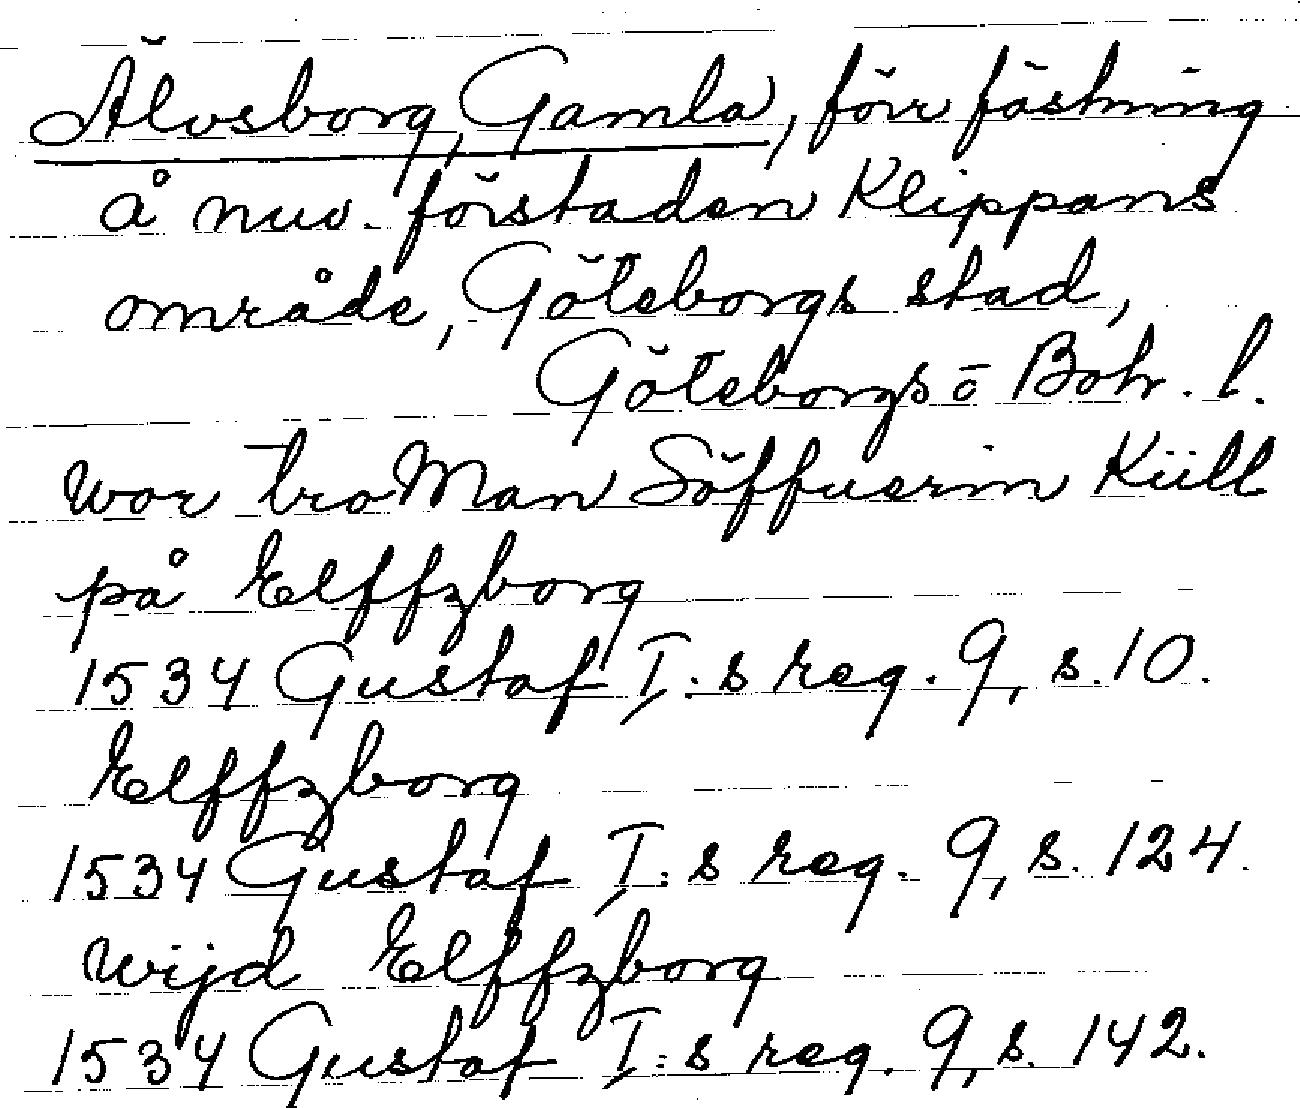 Älvsborg, Gamla, förr fästning
å nuv. förstaden Klippans
område, Göteborgs stad,
Göteborgs o Boh. l.
wor tro Man Söffuerin Kiill
på Elffzborg
1534 Gustaf I:s reg. 9, s. 10.
Elffzborg
1534 Gustaf I:s reg. 9, s. 124.
wijd Elffzborg
1534 Gustaf I:s reg. 9, s. 142.